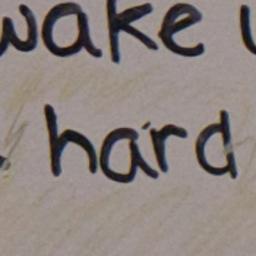 wake
hard